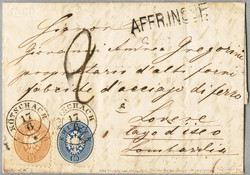 AFFRANC.E
Signor
Giovanni Andrea Gregorini
proprietario d'alti forni
fabbrica d'acciajo di ferro
a
Lovere
Lago d'Iseo
Lombardia
2
KÖTSCHACH
17
6
KÖTSCHACH
17
15
10